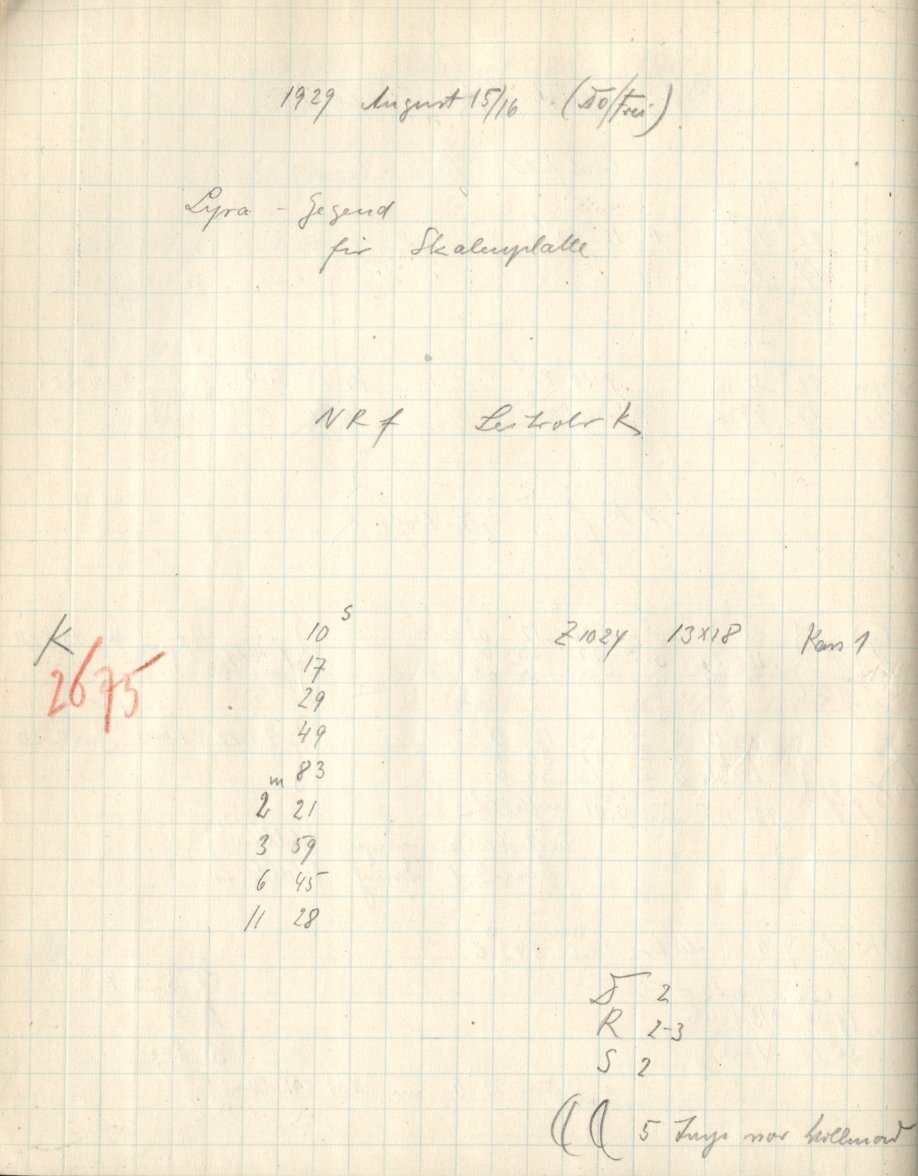 1929 August 15/16 (Do/Frei)
Lyra - Gegend
für Skalenplatte
NRf Leitrohr K
K 10 s Z 1024 13x18 Kass 1
2675 17
29
49
m 83
2 21
3 59
6 45
11 28
D 2
R 2-3
S 2
5 Tage vor Vollmond